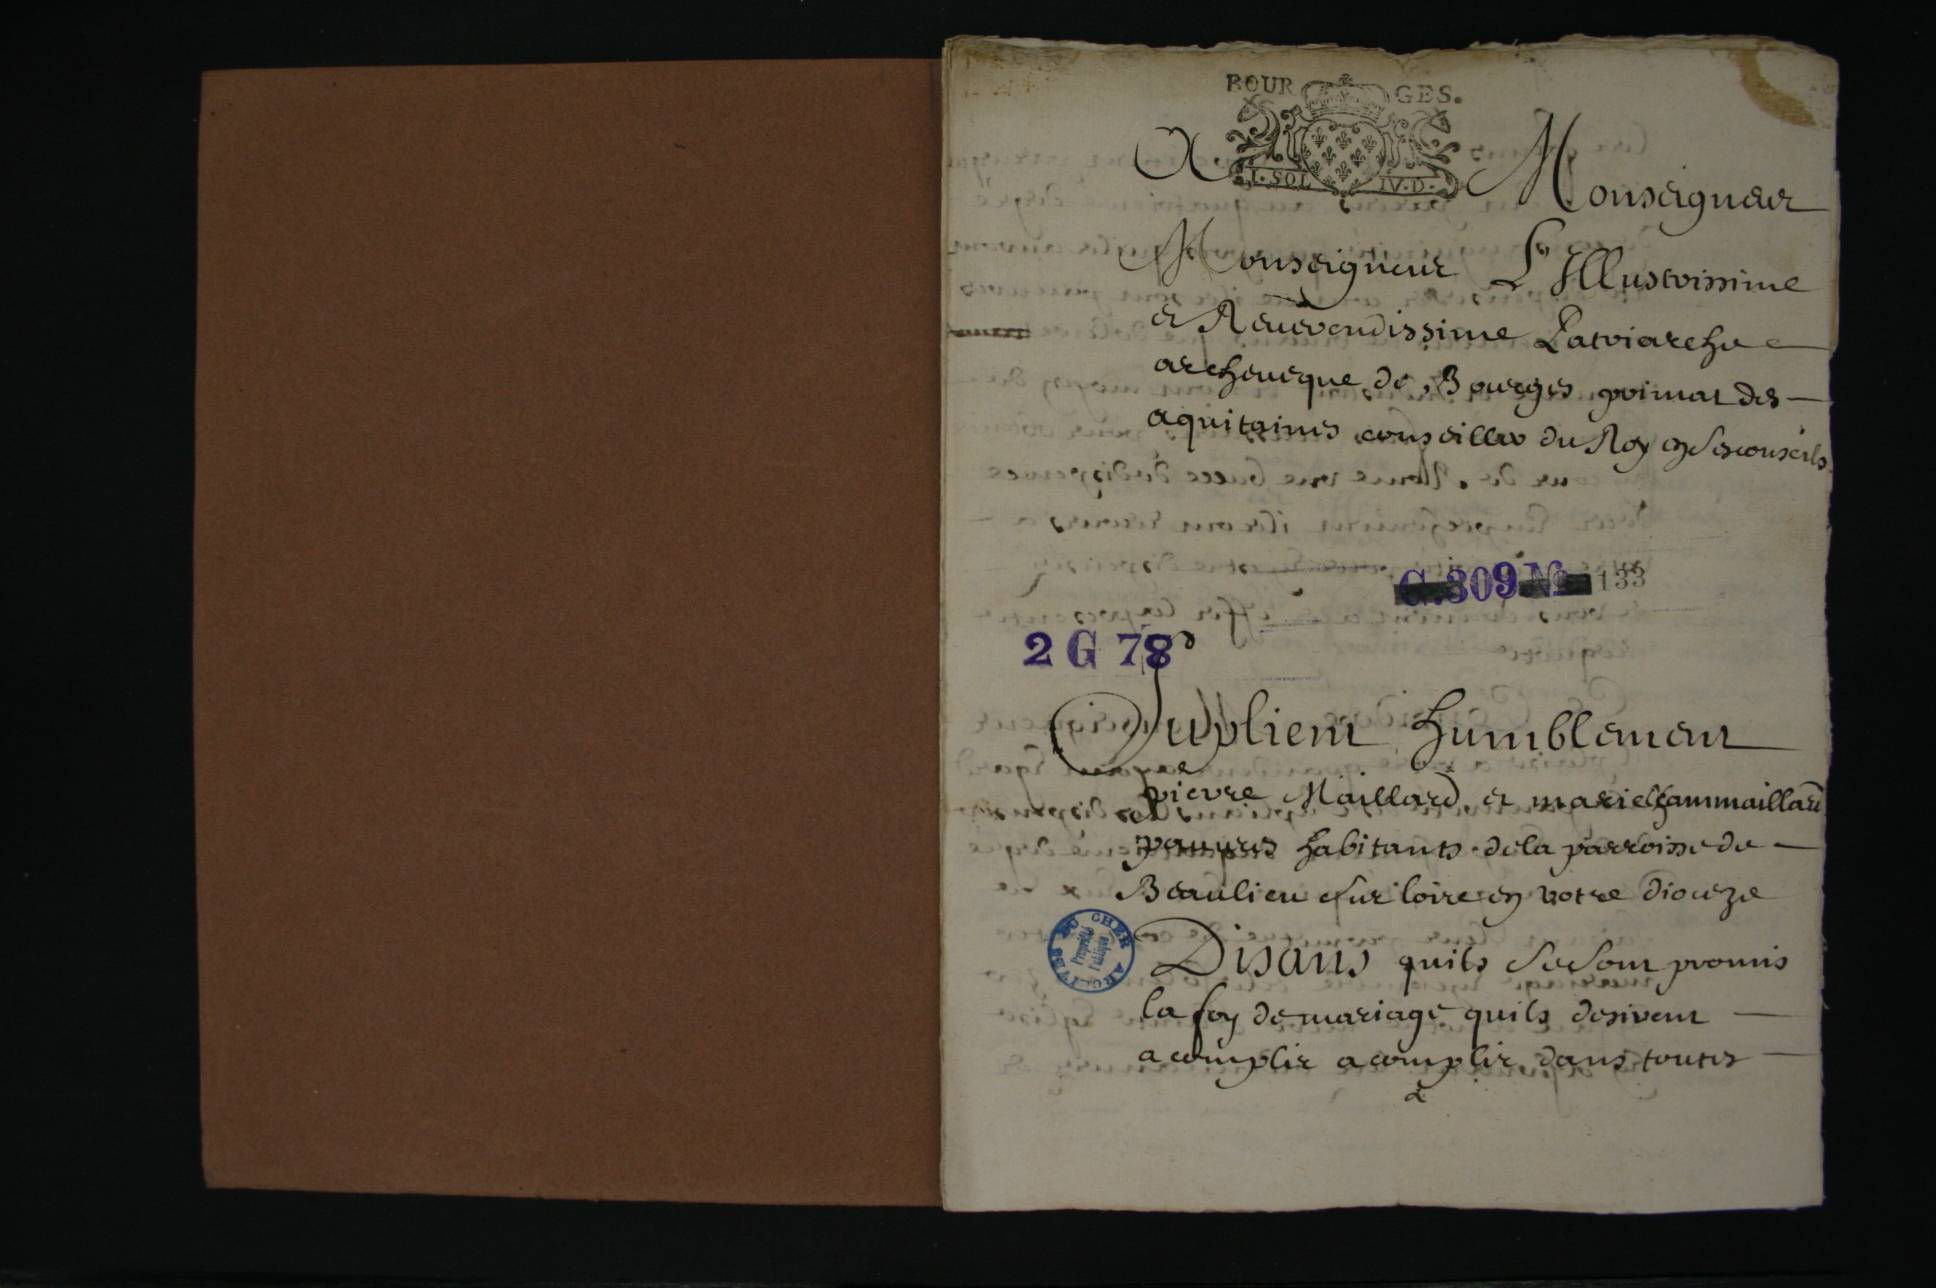 BOURGES.
I·SOL IV·D·
A Monseigneur
Monseigneur L'Illustrissime
et Reuerendissime Patriarche
archeueque de Bourges primat des
aquitaines conseiller du Roy en ses conseils
G.309 № 133
2 G 78
Suplient humblement
pierre Maillard et marie
pauures habitants de la parroisse de
Beaulieu sur loire en votre dioceze
DU CHER ARCHIVES
Propriété
Publique
Disans quils se sont promis
la foy de mariage quils desirent
acomplir acomplir dans toutes